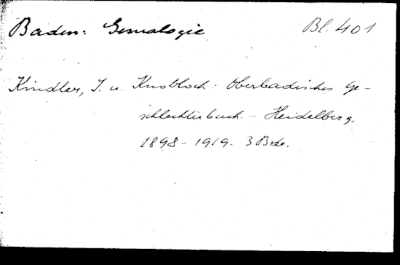 Baden: Genealogie Bl. 401
Kindler, J. u. Knobloch: Oberbadisches Ge-
schlechterbuch. - Heidelberg.
1898-1919. 3 Bde.